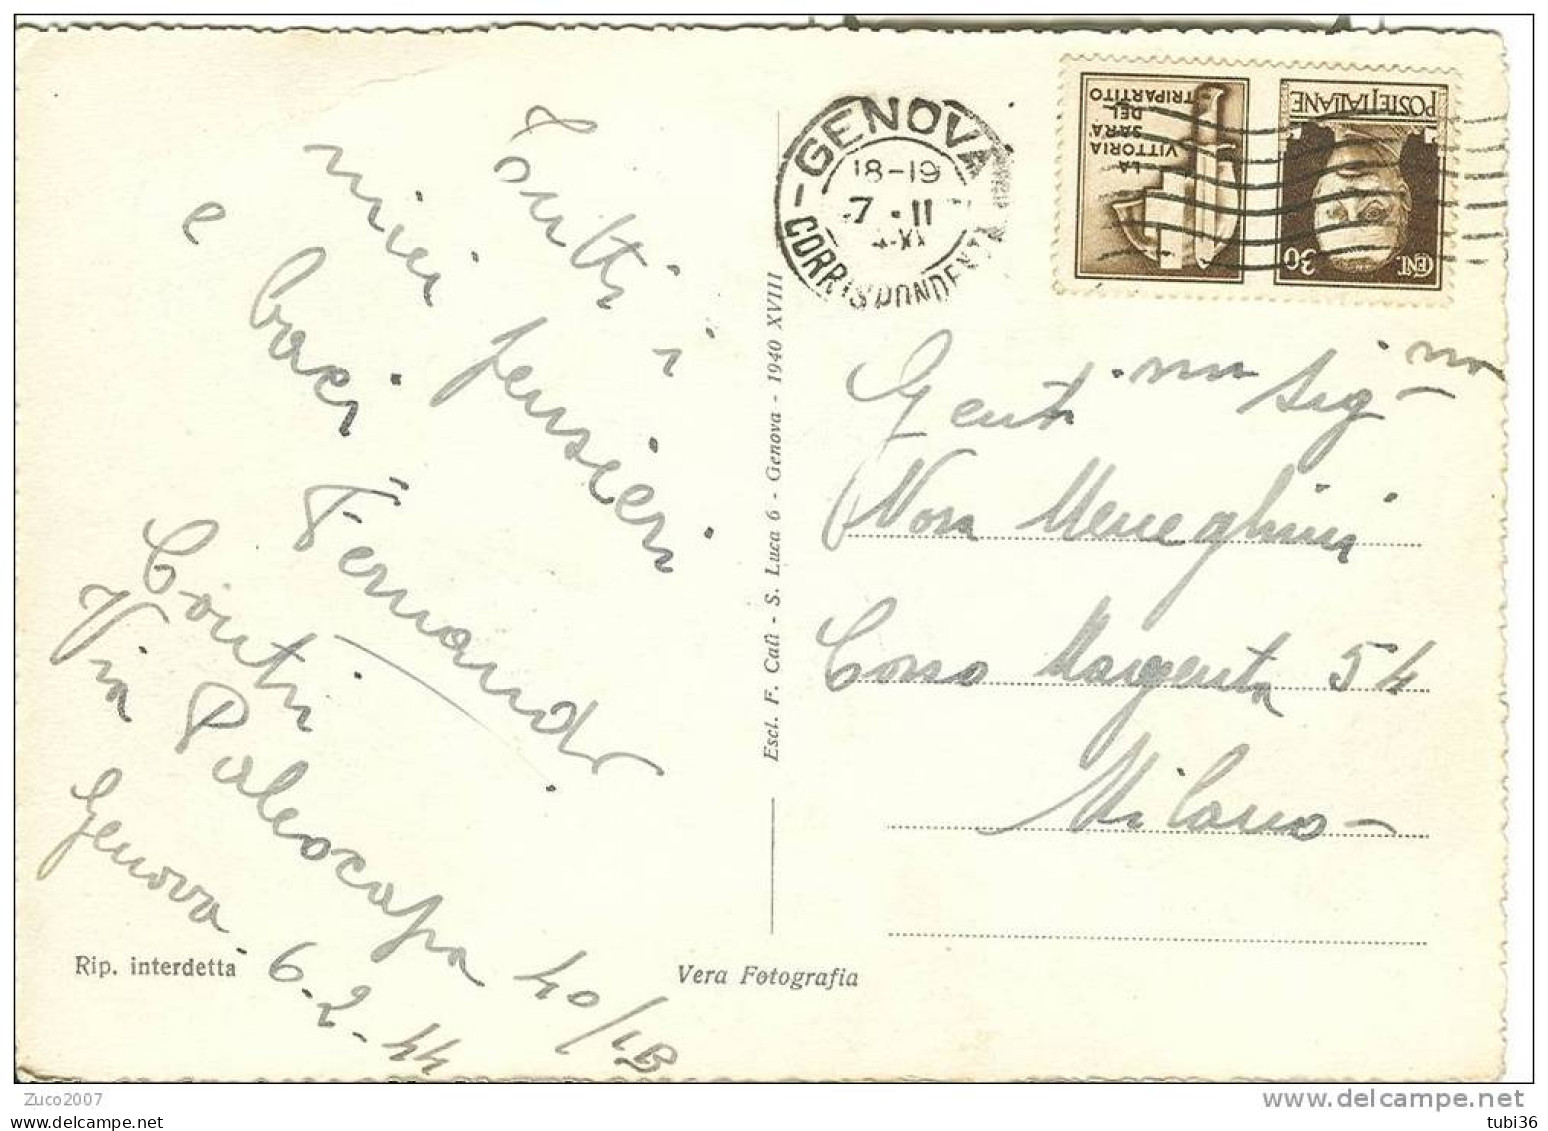 Tutti i
miei pensieri
e baci
Fernando
Conti
Via Paleocapa 40/1B
Genova 6-2-44
Rip. interdetta
Vera Fotografia
Escl. F. Calì - S. Luca 6 - Genova - 1940 XVIII
GENOVA
CORRISPONDENZA
18-19
7 · II
LA
VITTORIA
SARÀ
DEL
TRIPARTITO
POSTE ITALIANE
CENT. 30
Gentma Signa
Nora Meneghini
Corso Margenta 54
Milano -
Zuco2007
www.delcampe.net
tubi36